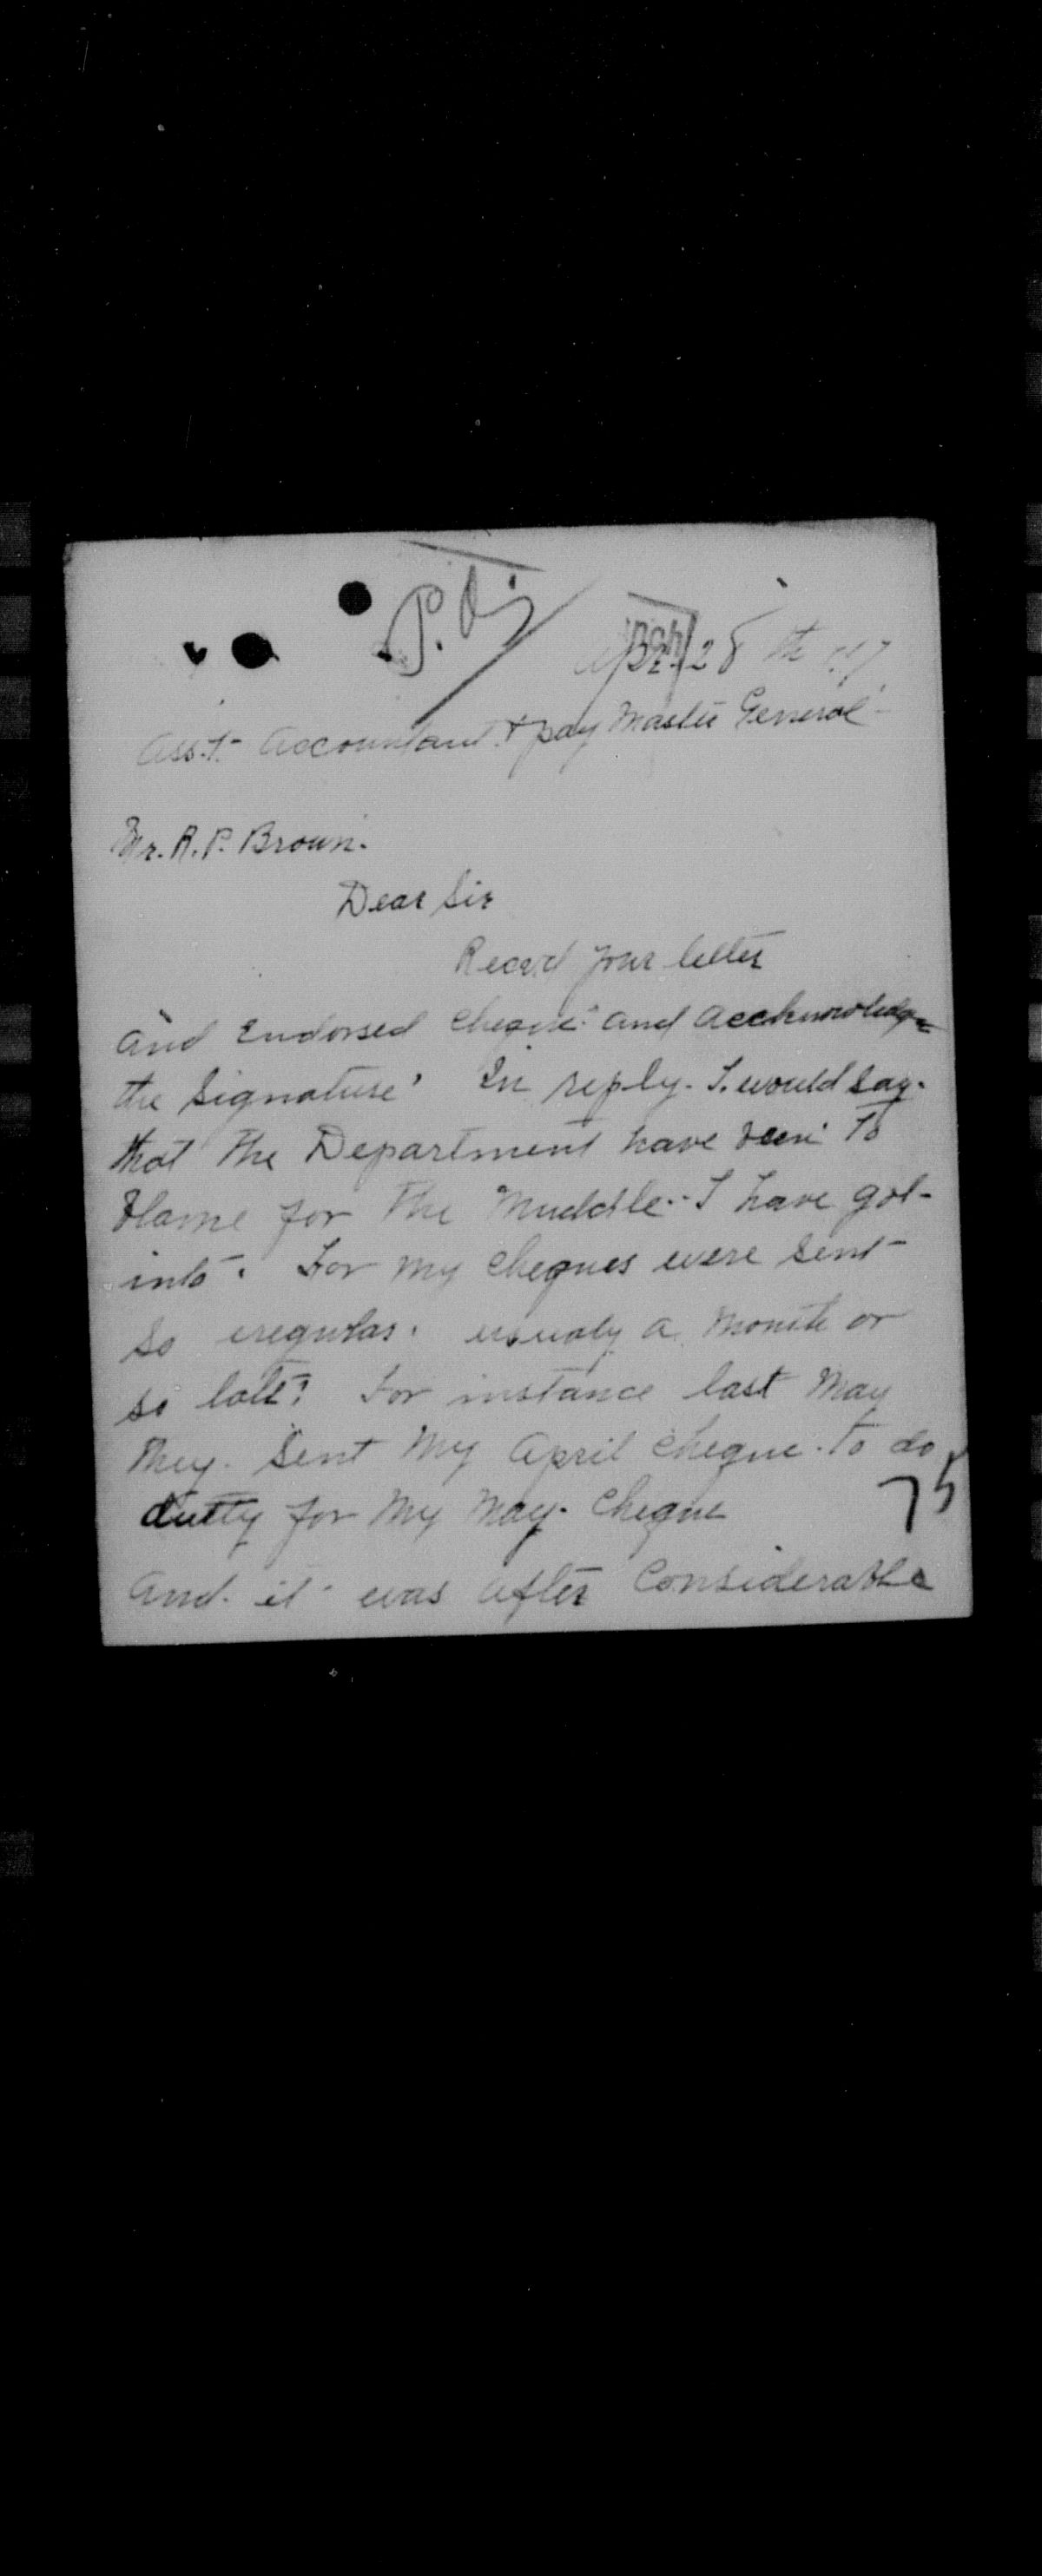 P.O.
Apr. 28th 17
Ass.t. Accountant & pay Master General
Mr. R. P. Brown.
Dear Sir
Recevd your letter
and Endorsed Cheque. and acchnowledge
the Signature. In reply. I. would say.
that the Department have been to
blame for the Muddle. I have got
into. For my Cheques were sent
so iregular. usualy a month or
so late. For instance last May
they. Sent My April Cheque. to do
dutty for My May. Cheque
75
and. it was after Considerable